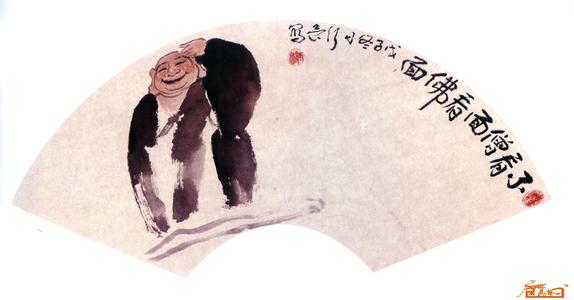 不看僧面看佛面
戊子冬月
写